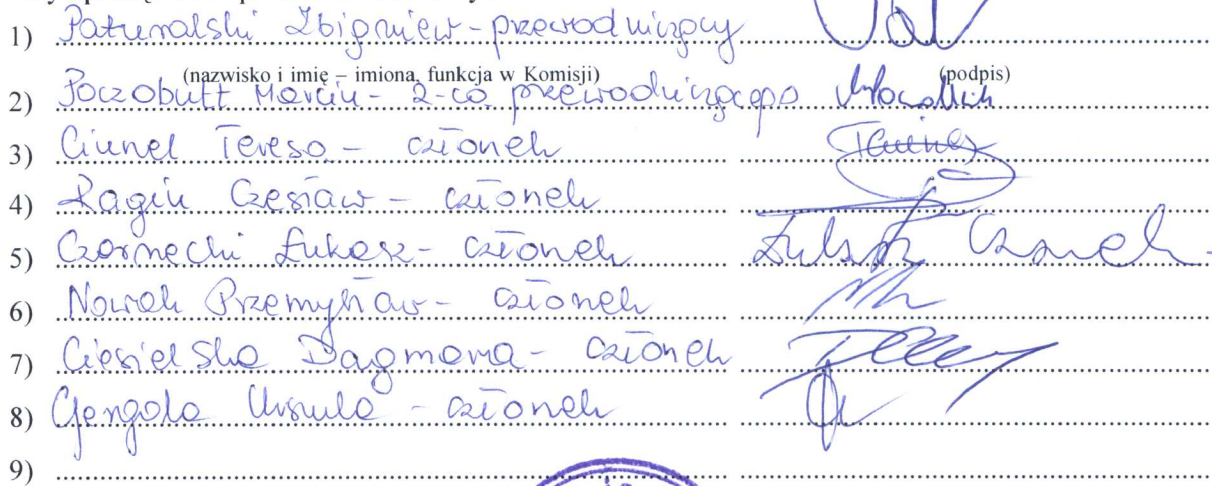 1) Paturalski Zbigniew - przewodniczący
(nazwisko i imię – imiona, funkcja w Komisji) (podpis)
2) Poczobutt Marcin - z-ca przewodniczącego
3) Ciunel Teresa - członek
4) Ragin Czesław - członek
5) Czarnecki Łukasz - członek Łukasz Czarnecki
6) Nowak Przemysław - członek
7) Ciesielska Dagmara - członek
8) Gergola Urszula - członek
9)